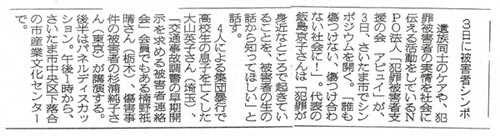 3日に被害者シンポ
遺族同士のケアや、犯
罪被害者の実情を社会に
伝える活動をしているN
PO法人「犯罪被害者支
援の会 アピュイ」が、
3日、さいたま市でシン
ポジウムを開く。「誰も
傷つけない、傷つけ合わ
ない社会に!」。代表の
飯島京子さんは「犯罪が
身近なところで起きてい
ることを、被害者の生の
話から知ってほしい」と
話す。
4人による集団暴行で
高校生の息子を亡くした
大山英子さん(埼玉)、
「交通事故調書の早期開
示を求める被害者連絡
会」会員でもある楠野祇
晴さん(栃木)、傷害事
件の被害者の杉浦純子さ
ん(東京)が講演する。
後半はパネルディスカッ
ション。午後1時から、
さいたま市中央区下落合
の市産業文化センター
で。